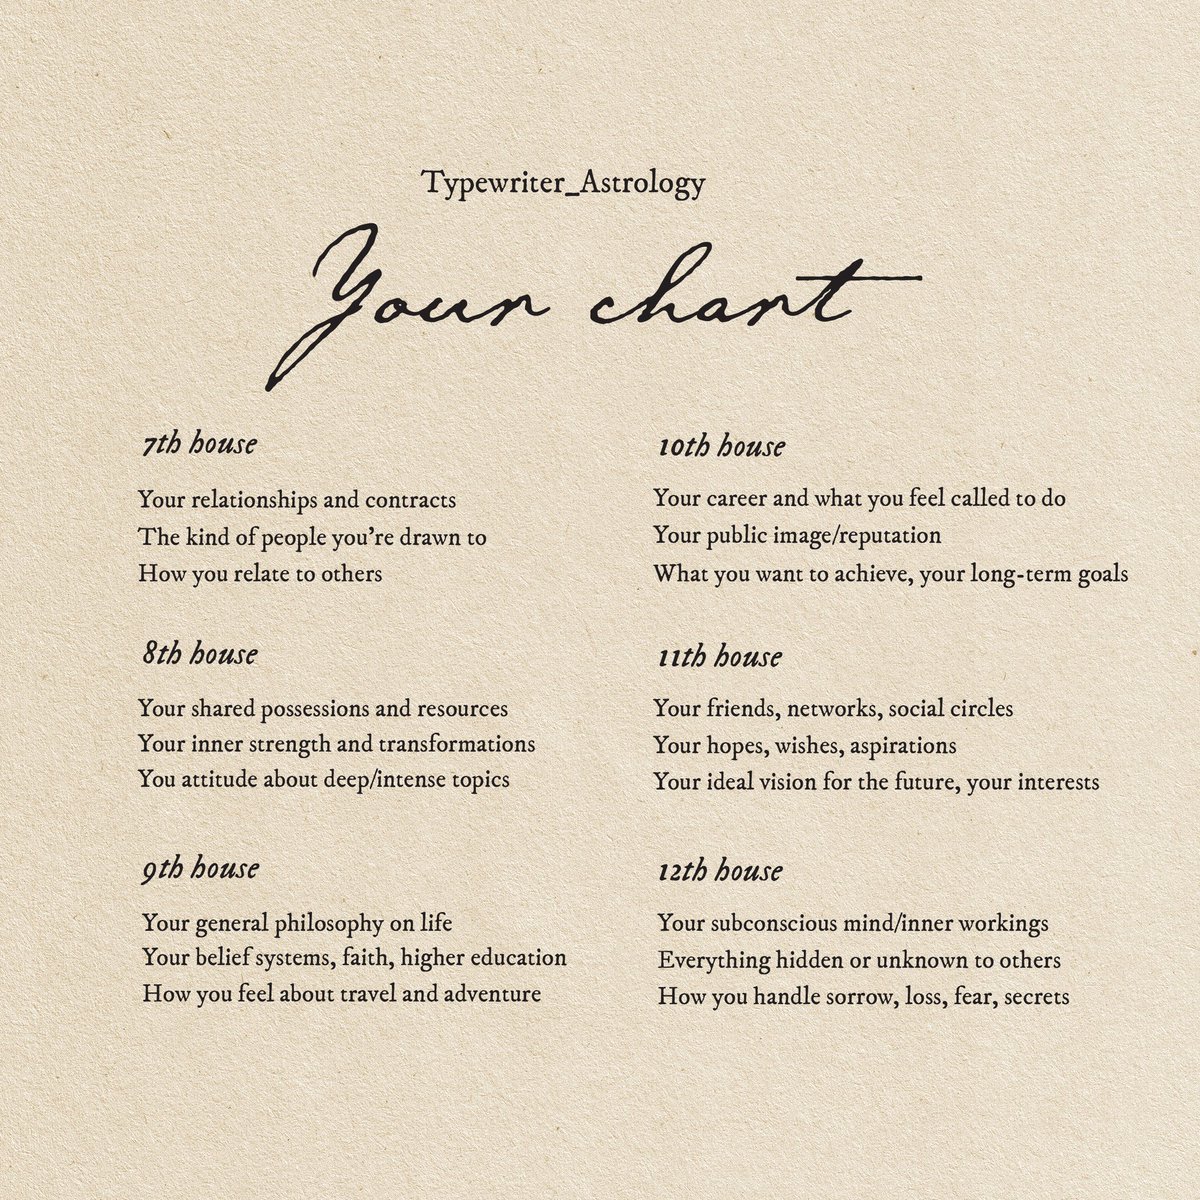 Typewriter_Astrology
Your chart
7th house
Your relationships and contracts
The kind of people you're drawn to
How you relate to others
8th house
Your shared possessions and resources
Your inner strength and transformations
You attitude about deep/intense topics
9th house
Your general philosophy on life
Your belief systems, faith, higher education
How you feel about travel and adventure
10th house
Your career and what you feel called to do
Your public image/reputation
What you want to achieve, your long-term goals
11th house
Your friends, networks, social circles
Your hopes, wishes, aspirations
Your ideal vision for the future, your interests
12th house
Your subconscious mind/inner workings
Everything hidden or unknown to others
How you handle sorrow, loss, fear, secrets